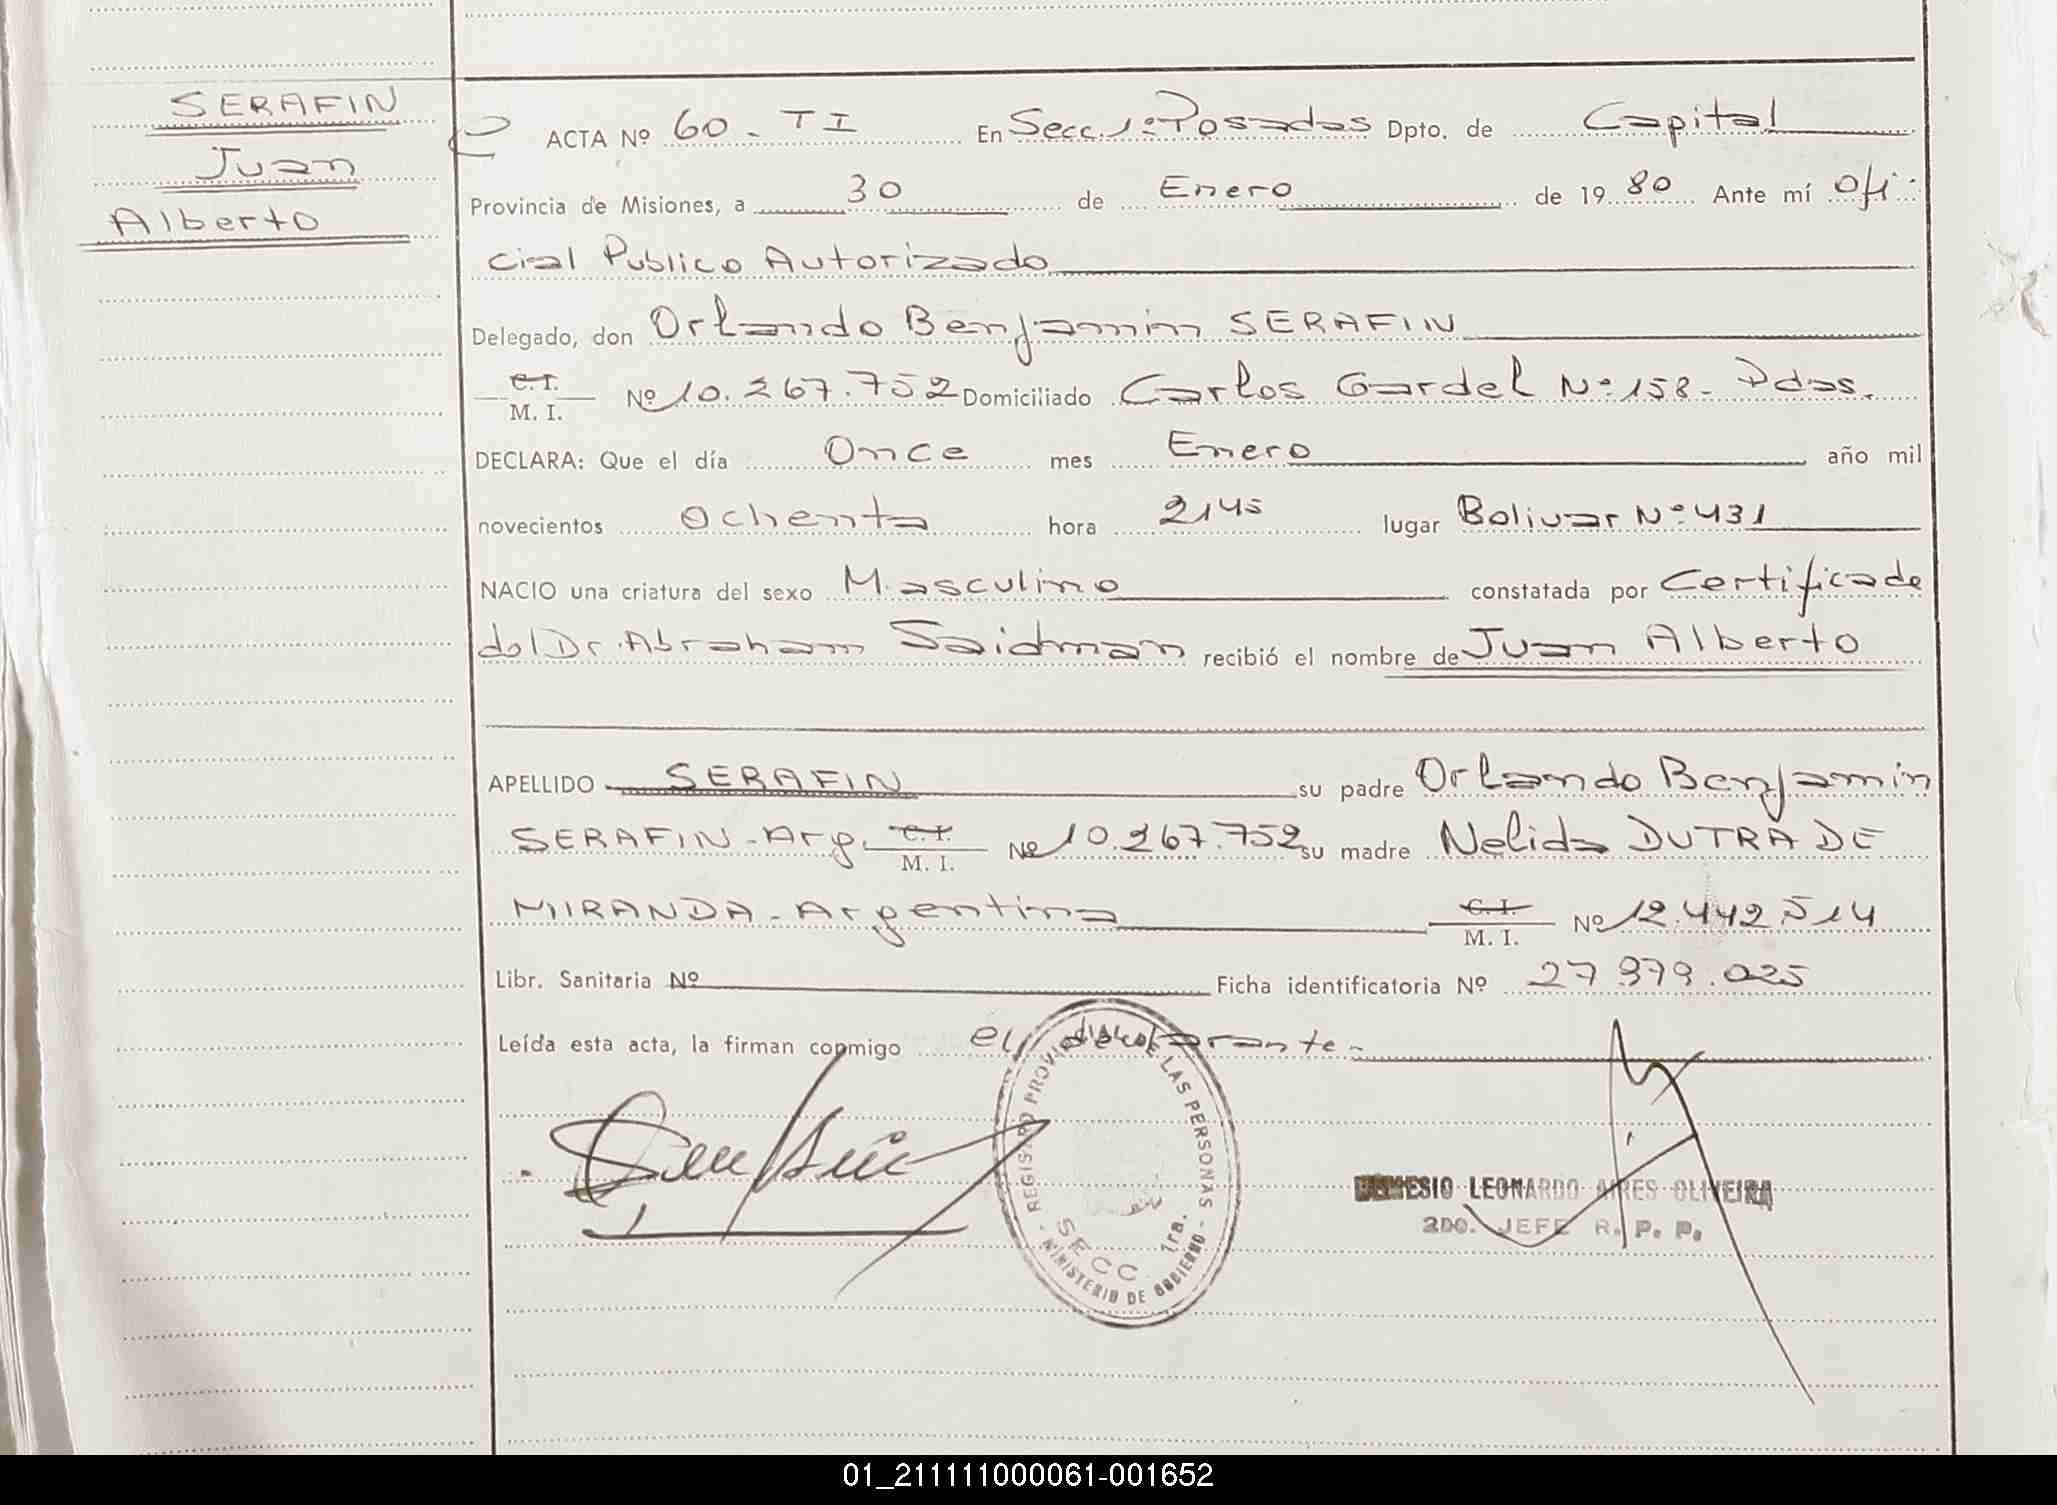 SERAFIN
Juan
Alberto
ACTA Nº 60 - TI En Secc. 1º Posadas Dpto. de Capital
Provincia de Misiones, a 30 de Enero de 1980 Ante mí Ofi
cial Publico Autorizado
Delegado, don Orlando Benjamin SERAFIN
C. I.
M. I. Nº 10.267.752 Domiciliado Carlos Gardel Nº 158 - Pdas.
DECLARA: Que el día Once mes Enero año mil
novecientos ochenta hora 2145 lugar Bolivar Nº 431
NACIO una criatura del sexo Masculino constatada por Certificado
del Dr. Abraham Saidman recibió el nombre de Juan Alberto
APELLIDO SERAFIN su padre Orlando Benjamin
SERAFIN - Arg. C. I. M. I. Nº 10.267.752 su madre Nelida DUTRA DE
MIRANDA - Argentina C. I. M. I. Nº 12.442.514
Libr. Sanitaria Nº Ficha identificatoria Nº 27.979.025
Leída esta acta, la firman conmigo el declarante.-
REGISTRO PROVINCIAL DE LAS PERSONAS
SECC. 1ra.
MINISTERIO DE GOBIERNO
LEONARDO AIRES OLIVEIRA
2DO. JEFE R. P. P.
01_211111000061-001652